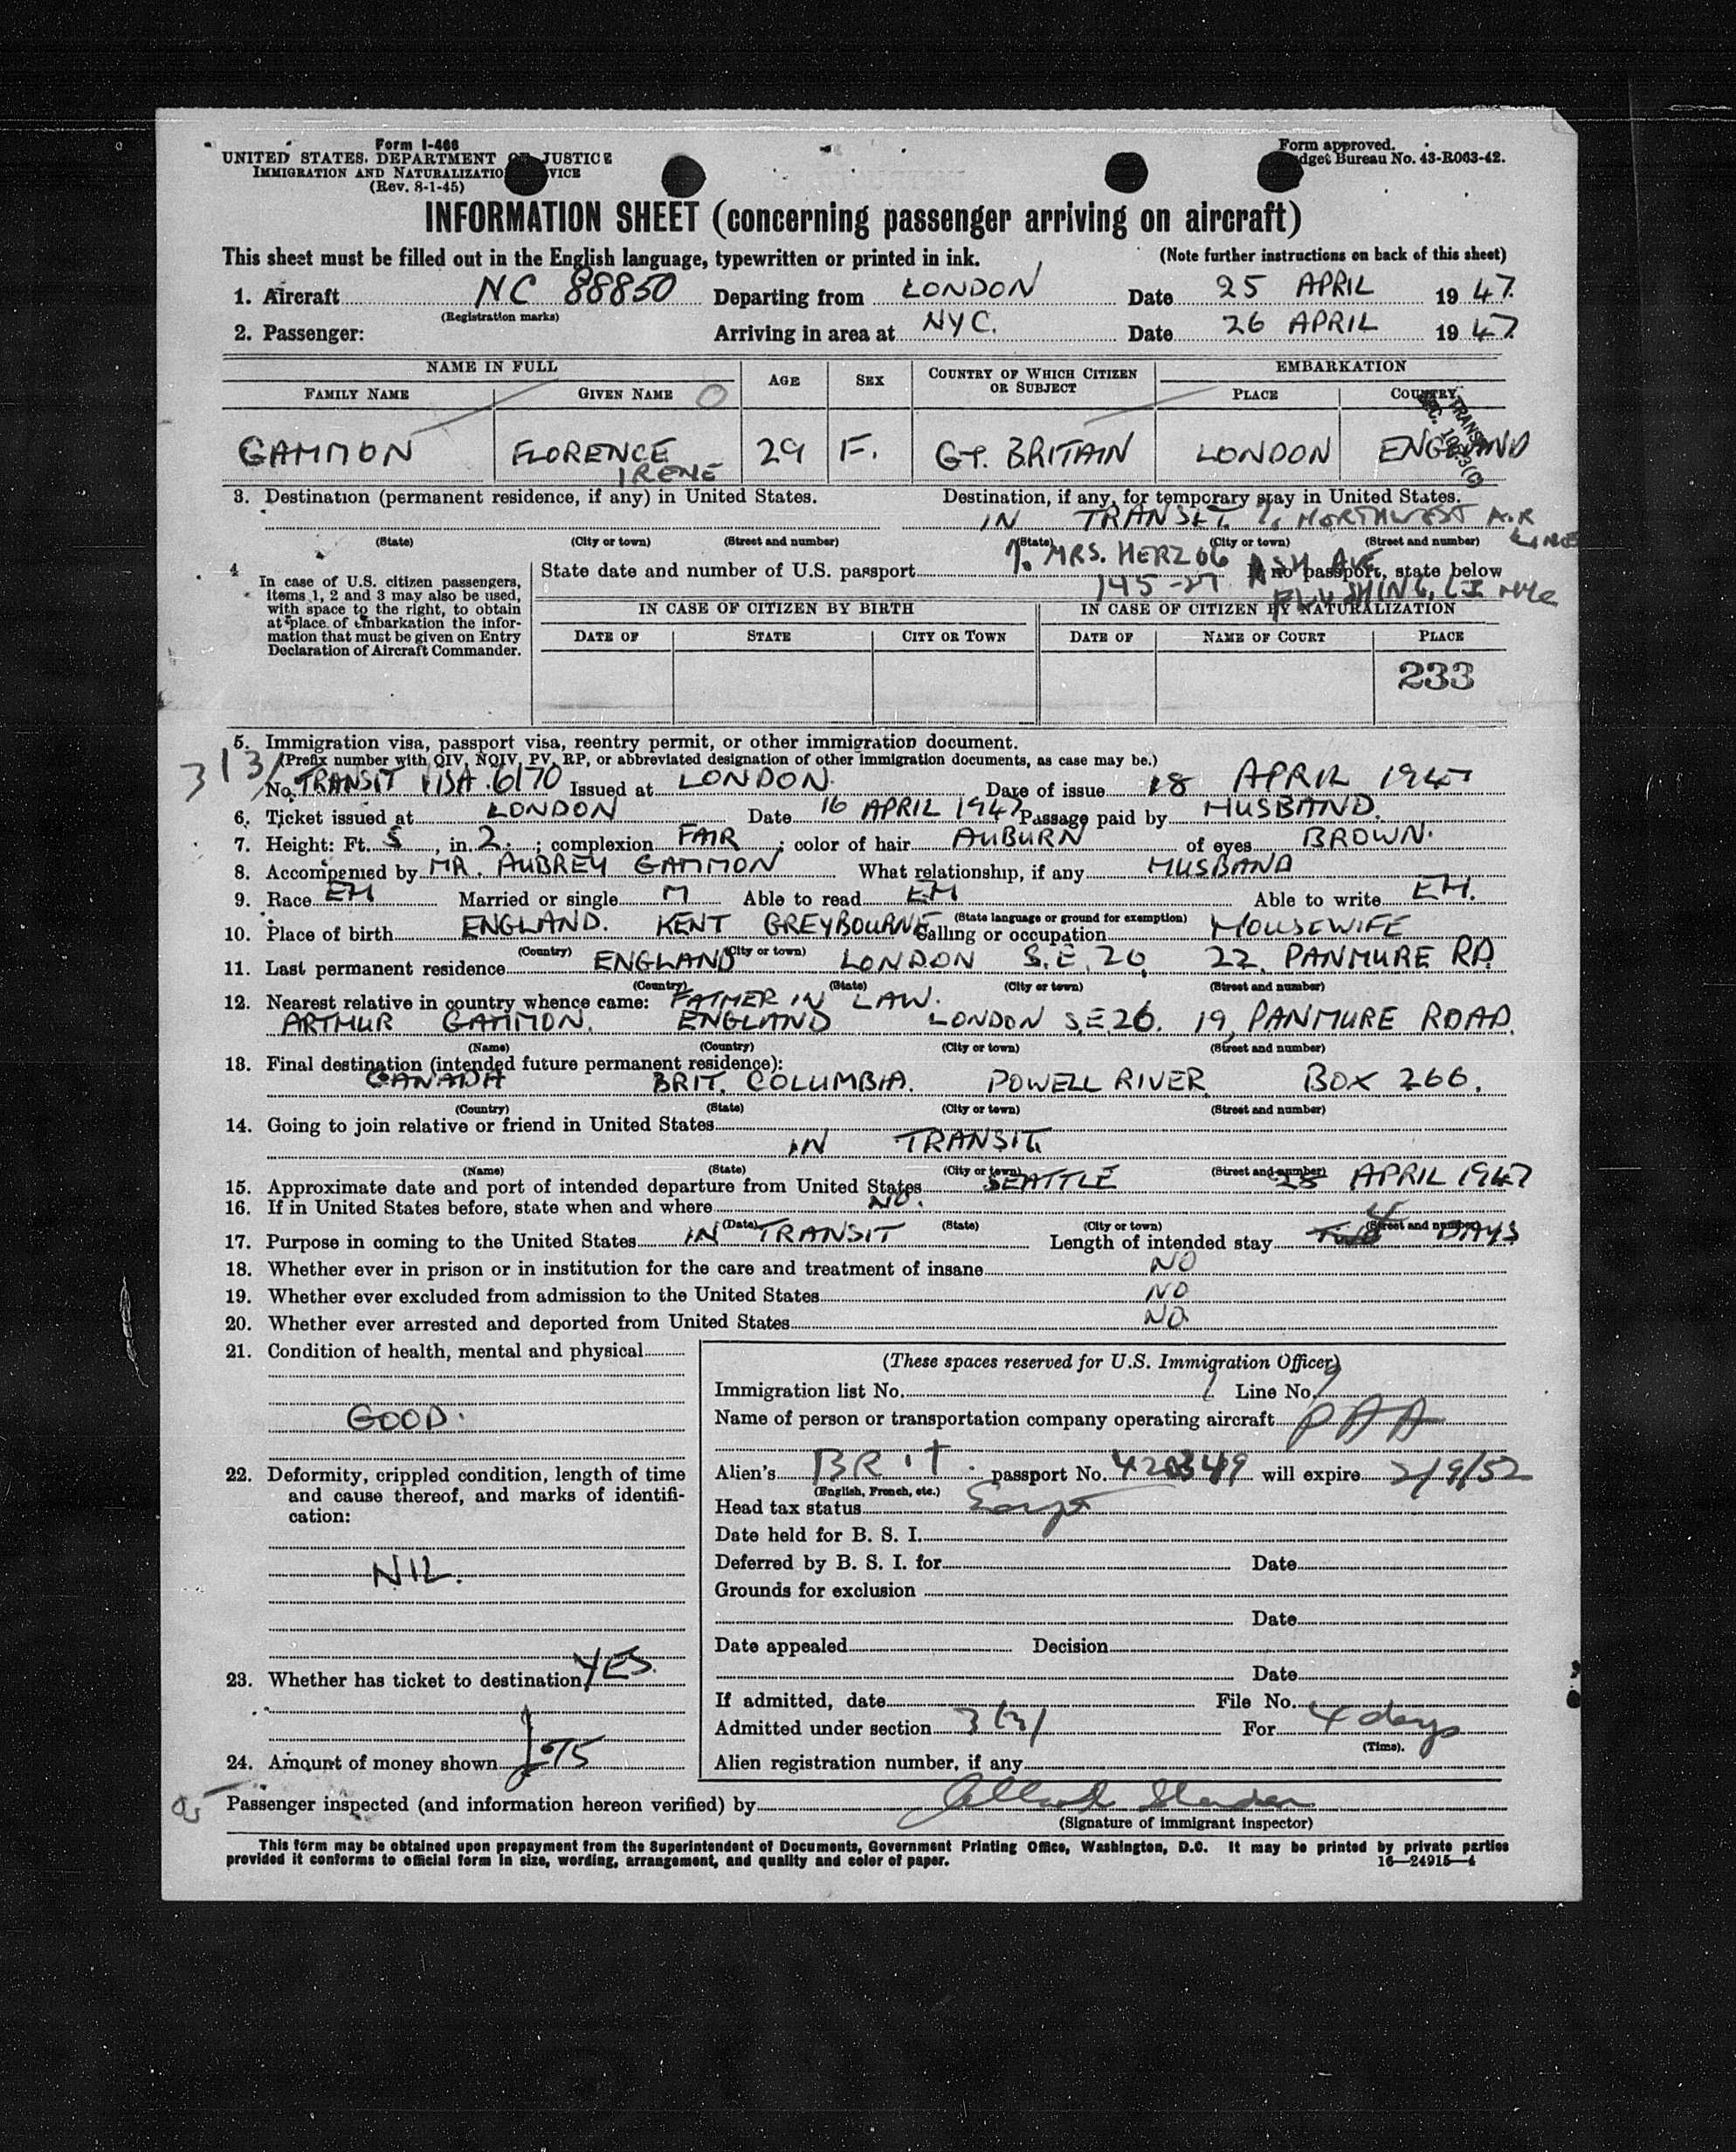 Form I-466
UNITED STATES DEPARTMENT OF JUSTICE
IMMIGRATION AND NATURALIZATIO VICE
(Rev. 8-1-45)
Form approved.
dget Bureau No. 43-R063-42.
INFORMATION SHEET (concerning passenger arriving on aircraft)
This sheet must be filled out in the English language, typewritten or printed in ink. (Note further instructions on back of this sheet)
1. Aircraft NC 88850 Departing from LONDON Date 25 APRIL 1947.
(Registration marks)
2. Passenger: Arriving in area at NYC. Date 26 APRIL 1947.
NAME IN FULL AGE SEX COUNTRY OF WHICH CITIZEN OR SUBJECT EMBARKATION
FAMILY NAME GIVEN NAME PLACE COUNTRY
GAMMON FLORENCE IRENE 29 F. GT. BRITAIN LONDON ENGLAND
TRANSIT
3. Destination (permanent residence, if any) in United States. Destination, if any, for temporary stay in United States.
IN TRANSIT. % NORTHWEST AIR LINE
(State) (City or town) (Street and number) (State) (City or town) (Street and number)
%. MRS. HERZOG ASH AVE
145-27 FLUSHING, L.I. NYC
4 In case of U.S. citizen passengers, items 1, 2 and 3 may also be used, with space to the right, to obtain at place of embarkation the information that must be given on Entry Declaration of Aircraft Commander.
State date and number of U.S. passport If no passport, state below
IN CASE OF CITIZEN BY BIRTH IN CASE OF CITIZEN BY NATURALIZATION
DATE OF STATE CITY OR TOWN DATE OF NAME OF COURT PLACE
233
5. Immigration visa, passport visa, reentry permit, or other immigration document.
(Prefix number with QIV, NQIV, PV, RP, or abbreviated designation of other immigration documents, as case may be.)
3(3)
No. TRANSIT VISA 6170 Issued at LONDON. Date of issue 18 APRIL 1947
6. Ticket issued at LONDON Date 16 APRIL 1947 Passage paid by HUSBAND.
7. Height: Ft. 5, in. 2.; complexion FAIR; color of hair AUBURN of eyes BROWN.
8. Accompenied by MR. AUBREY GAMMON What relationship, if any HUSBAND
9. Race EH Married or single M Able to read EH Able to write EH.
(State language or ground for exemption)
10. Place of birth ENGLAND. KENT GREYBOURNE Calling or occupation HOUSEWIFE
(Country) (City or town)
11. Last permanent residence ENGLAND LONDON S.E. 26 22, PANMURE RD.
(Country) (State) (City or town) (Street and number)
12. Nearest relative in country whence came: FATHER IN LAW.
ARTHUR GAMMON. ENGLAND LONDON S.E.26. 19, PANMURE ROAD.
(Name) (Country) (City or town) (Street and number)
13. Final destination (intended future permanent residence):
CANADA BRIT. COLUMBIA. POWELL RIVER, BOX 266.
(Country) (State) (City or town) (Street and number)
14. Going to join relative or friend in United States
IN TRANSIT.
(Name) (State) (City or town) (Street and number)
15. Approximate date and port of intended departure from United States SEATTLE 28 APRIL 1947
16. If in United States before, state when and where NO.
(Date) (State) (City or town) (Street and number)
17. Purpose in coming to the United States IN TRANSIT Length of intended stay TWO 4 DAYS
18. Whether ever in prison or in institution for the care and treatment of insane NO
19. Whether ever excluded from admission to the United States NO
20. Whether ever arrested and deported from United States NO
21. Condition of health, mental and physical
GOOD.
22. Deformity, crippled condition, length of time and cause thereof, and marks of identification:
NIL.
23. Whether has ticket to destination YES.
24. Amount of money shown £75
(These spaces reserved for U.S. Immigration Officer)
Immigration list No. 1 Line No. 9
Name of person or transportation company operating aircraft PAA
Alien's BRIT. passport No. 420349 will expire 2/9/52
(English, French, etc.)
Head tax status
Date held for B. S. I.
Deferred by B. S. I. for Date
Grounds for exclusion
Date
Date appealed Decision
Date
If admitted, date File No.
Admitted under section 3(3) For 4 days
(Time).
Alien registration number, if any
Passenger inspected (and information hereon verified) by
(Signature of immigrant inspector)
This form may be obtained upon prepayment from the Superintendent of Documents, Government Printing Office, Washington, D.C. It may be printed by private parties
provided it conforms to official form in size, wording, arrangement, and quality and color of paper. 16—24915-4